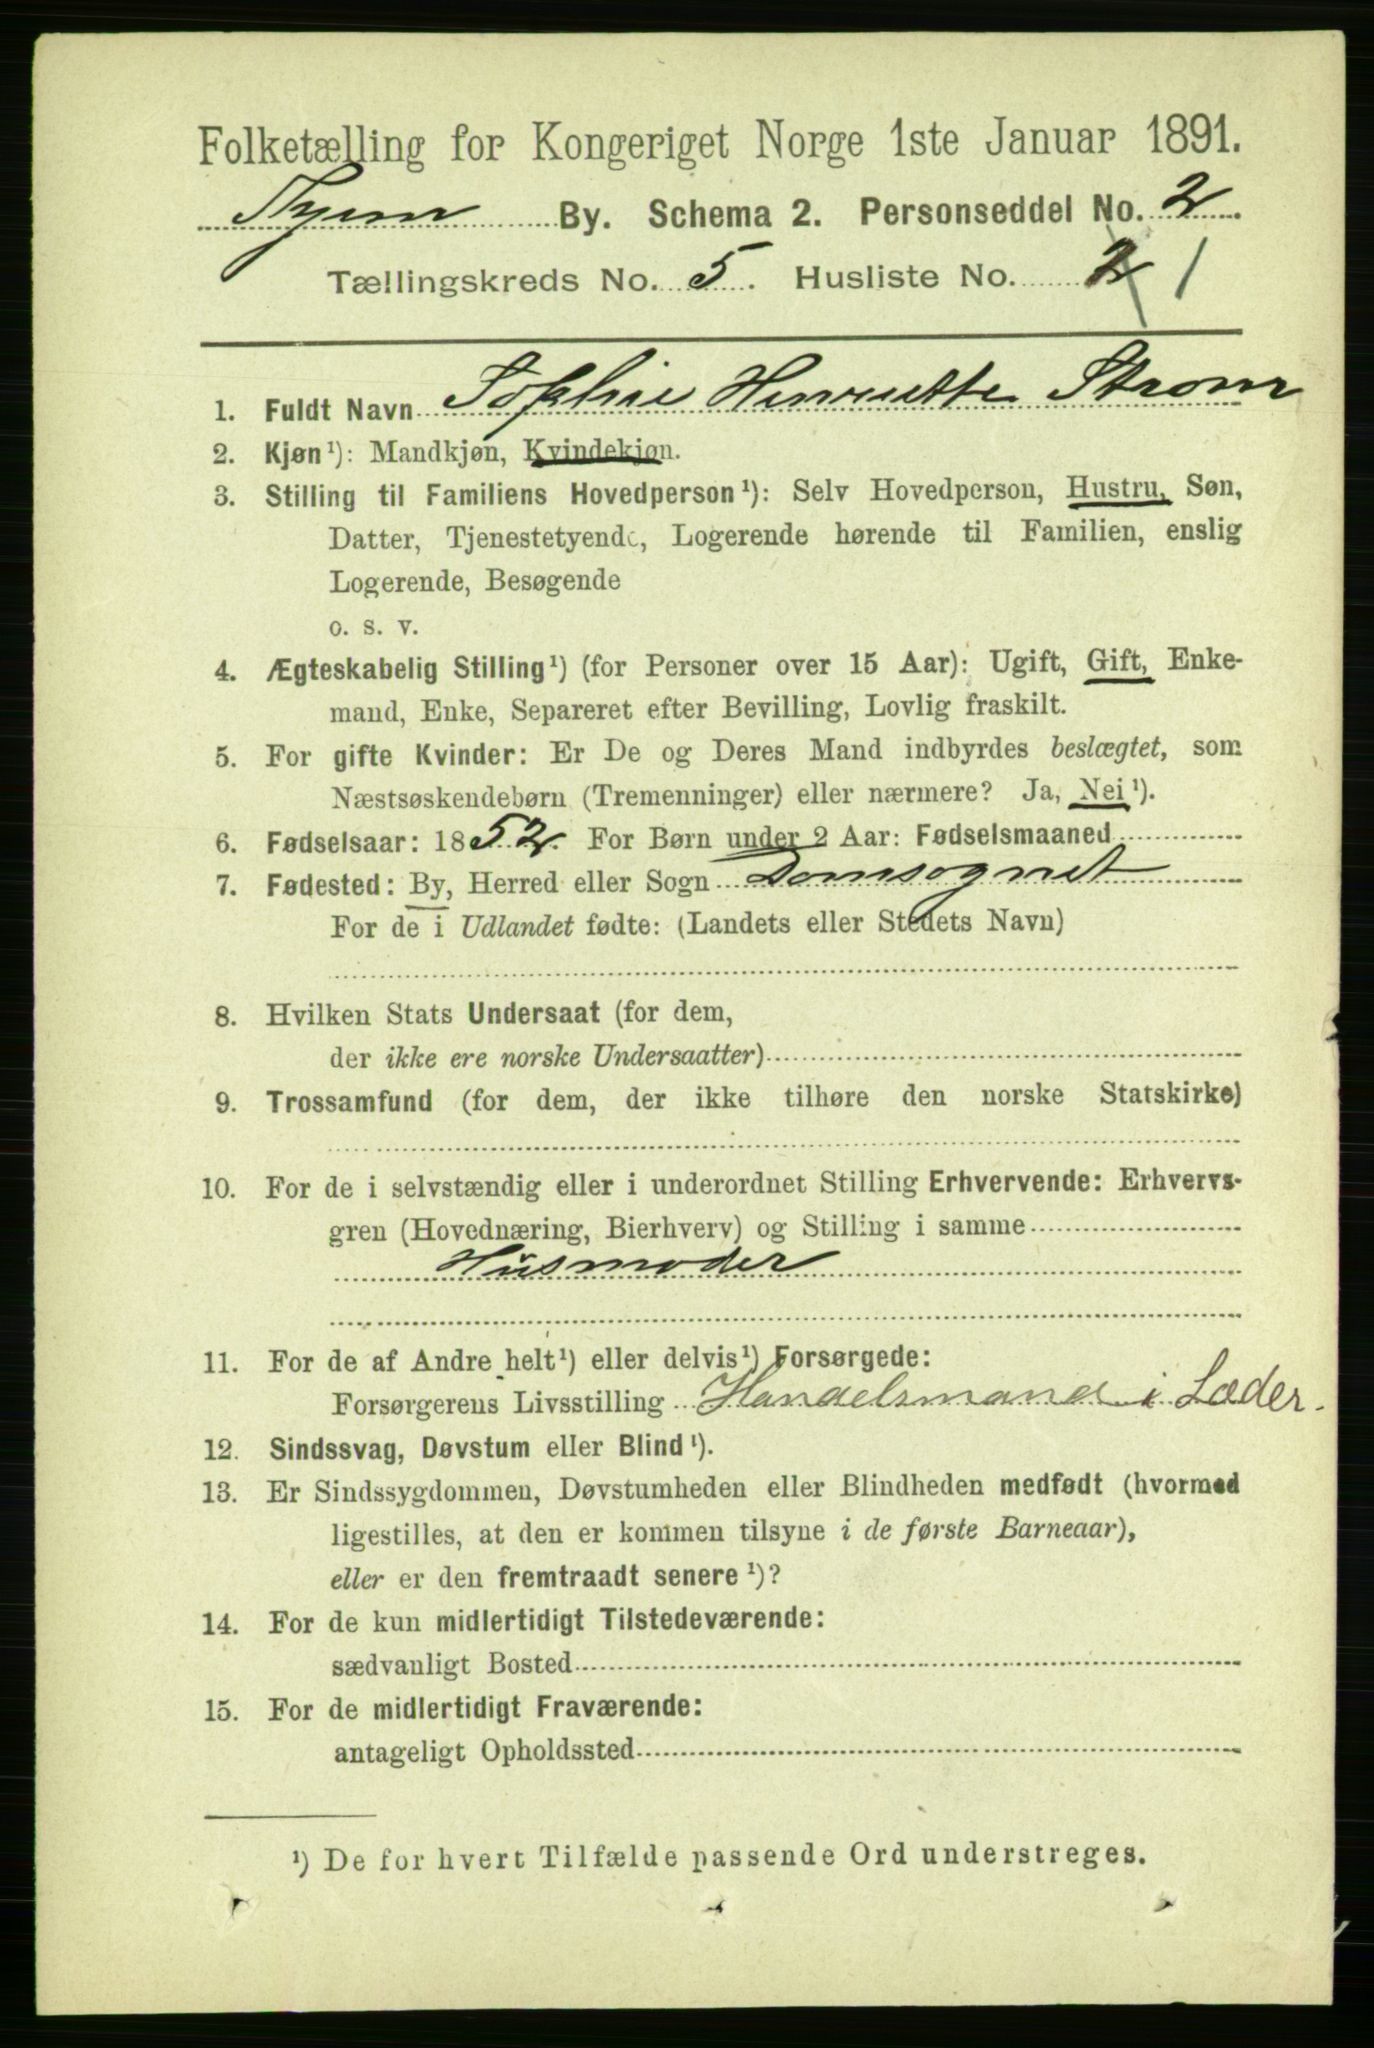 Folketælling for Kongeriget Norge 1ste Januar 1891.
By. Schema 2. Personseddel No. 2.
Tællingskreds No. 5. Husliste No. 2 1
1. Fuldt Navn Sophie Henriette Strøm
2. Kjøn¹): Mandkjøn, Kvindekjøn.
3. Stilling til Familiens Hovedperson¹): Selv Hovedperson, Hustru, Søn,
Datter, Tjenestetyende, Logerende hørende til Familien, enslig
Logerende, Besøgende
o. s. v.
4. Ægteskabelig Stilling¹) (for Personer over 15 Aar): Ugift, Gift, Enke-
mand, Enke, Separeret efter Bevilling, Lovlig fraskilt.
5. For gifte Kvinder: Er De og Deres Mand indbyrdes beslægtet, som
Næstsøskendebørn (Tremenninger) eller nærmere? Ja, Nei¹).
6. Fødselsaar: 1852. For Børn under 2 Aar: Fødselsmaaned
7. Fødested: By, Herred eller Sogn Domsognet
For de i Udlandet fødte: (Landets eller Stedets Navn)
8. Hvilken Stats Undersaat (for dem,
der ikke ere norske Undersaatter)
9. Trossamfund (for dem, der ikke tilhøre den norske Statskirke)
10. For de i selvstændig eller i underordnet Stilling Erhvervende: Erhvervs-
gren (Hovednæring, Bierhverv) og Stilling i samme
Husmoder
11. For de af Andre helt¹) eller delvis¹) Forsørgede:
Forsørgerens Livsstilling Handelsmand i Læder.
12. Sindssvag, Døvstum eller Blind¹).
13. Er Sindssygdommen, Døvstumheden eller Blindheden medfødt (hvormed
ligestilles, at den er kommen tilsyne i de første Barneaar),
eller er den fremtraadt senere¹)?
14. For de kun midlertidigt Tilstedeværende:
sædvanligt Bosted
15. For de midlertidigt Fraværende:
antageligt Opholdssted
¹) De for hvert Tilfælde passende Ord understreges.